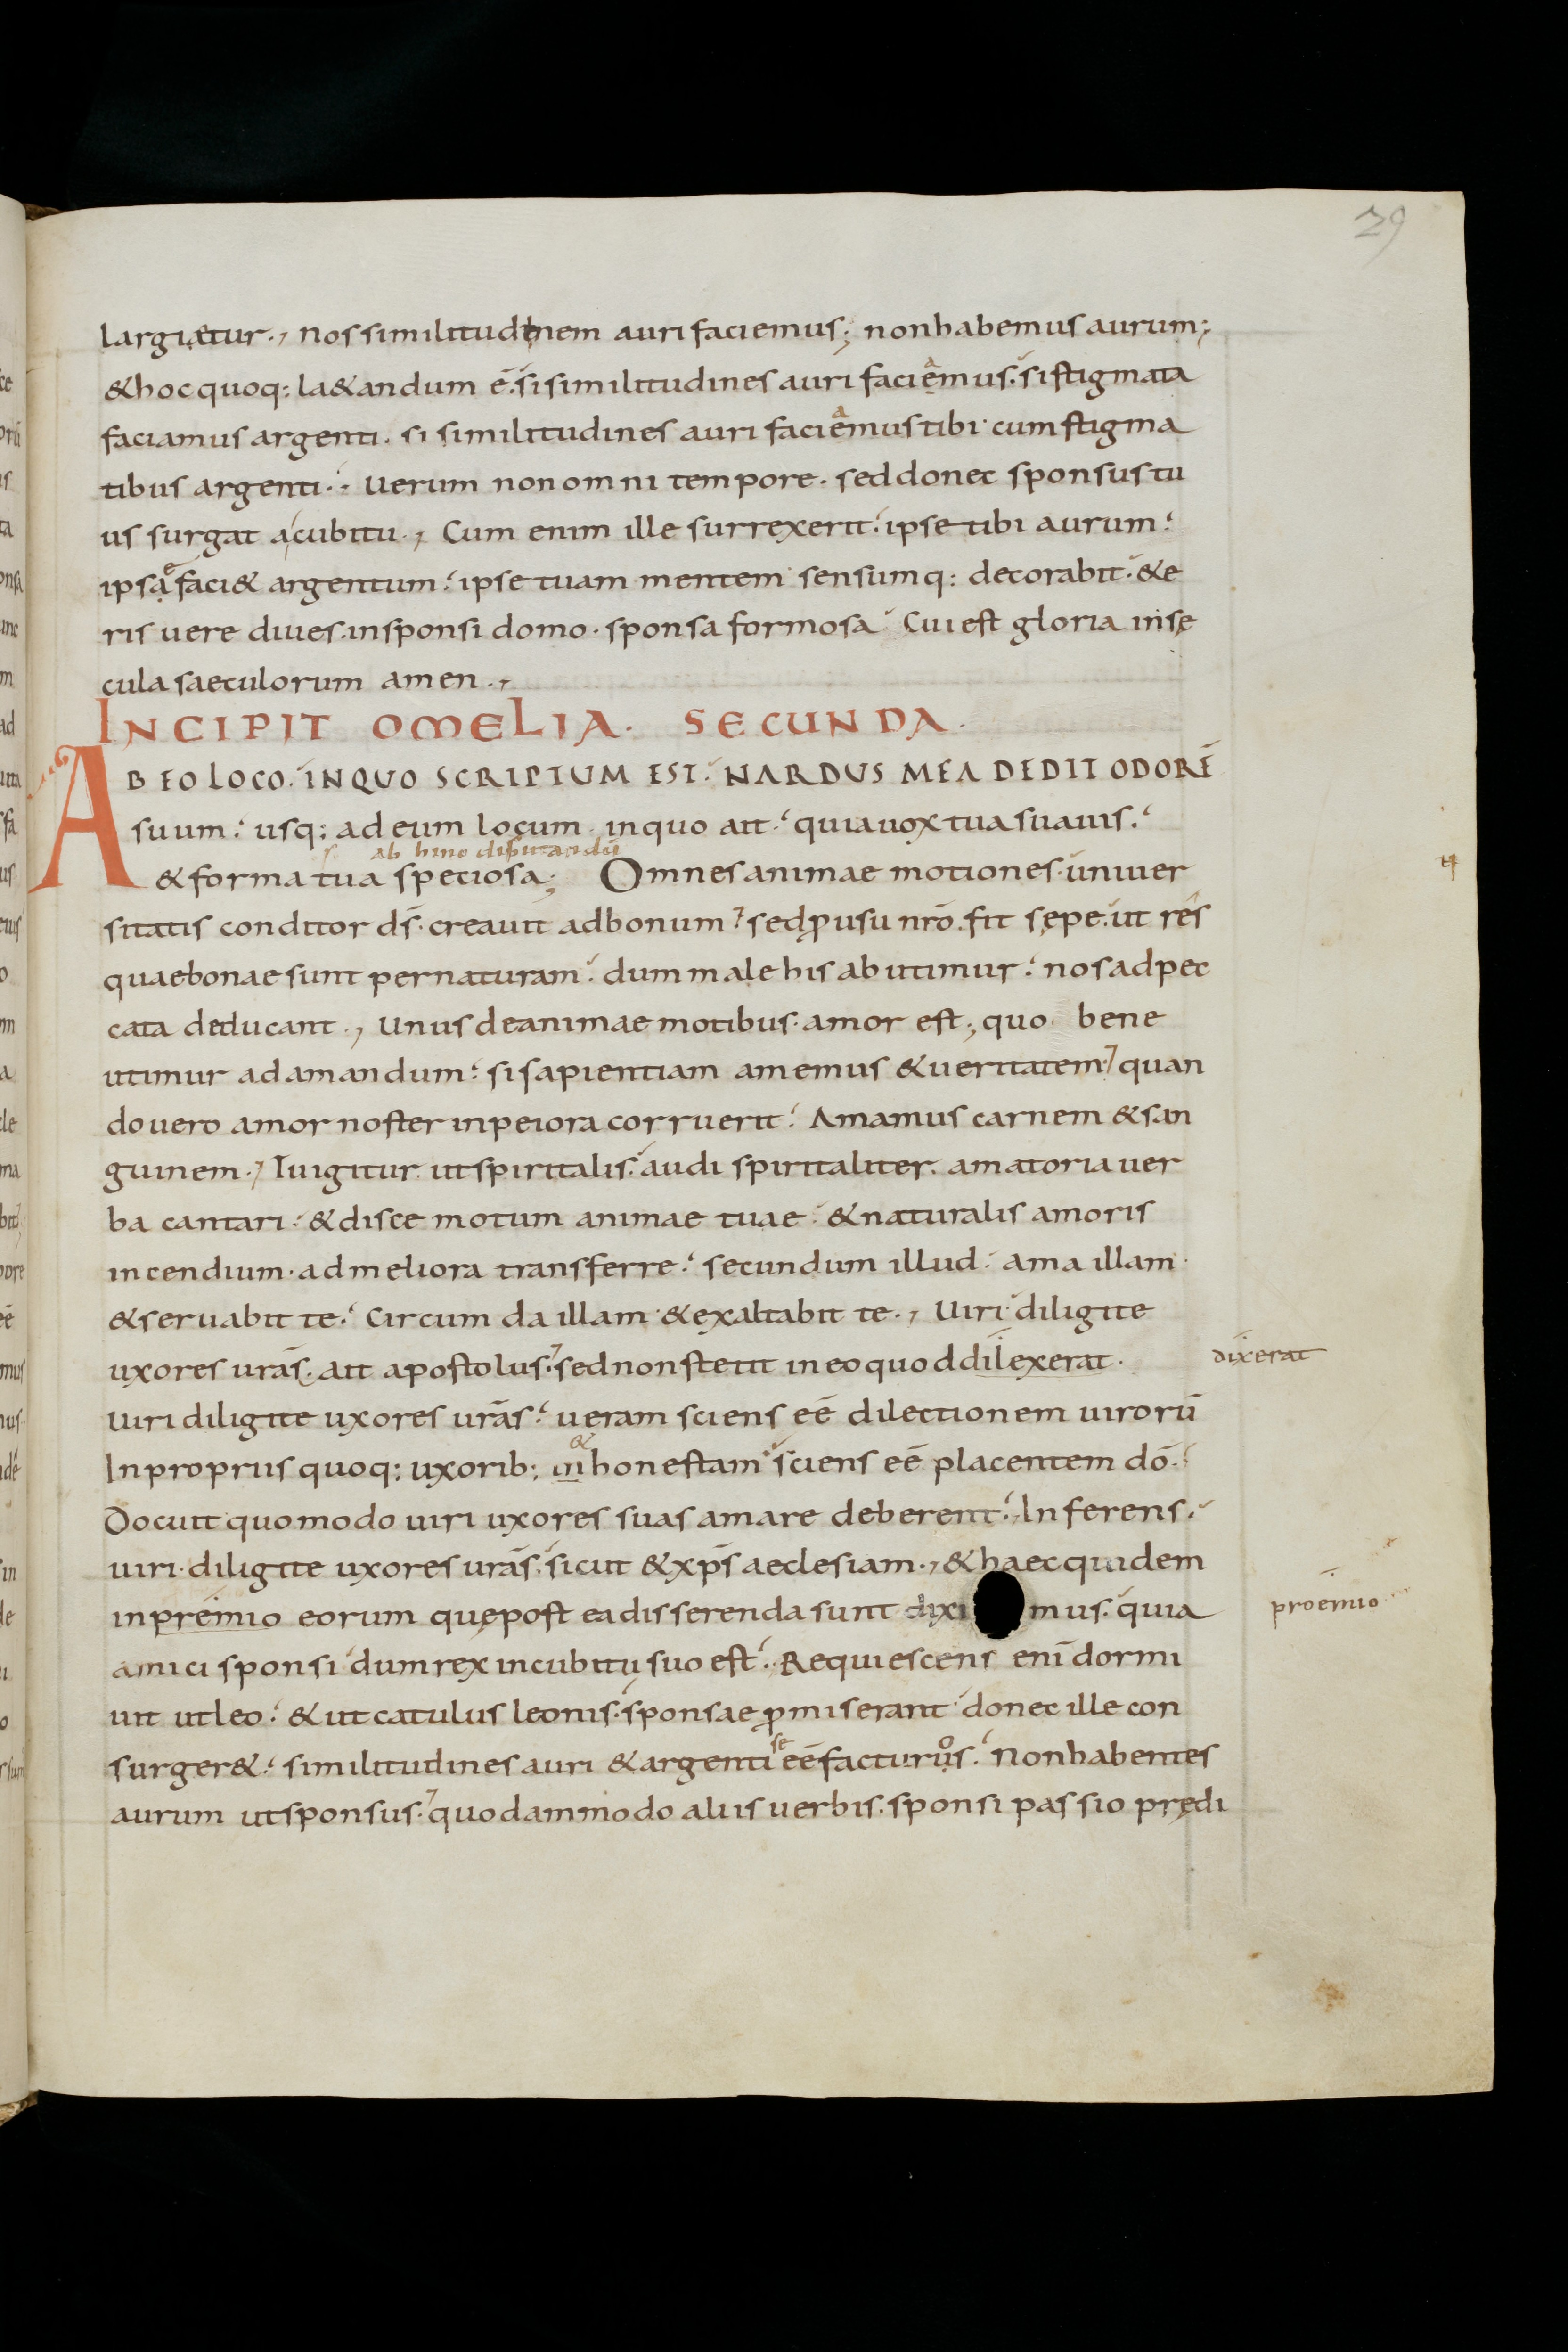 29
largiatur., nos similitudinem auri faciemus; non habemus aurum;
& hoc quoq: la&andum ē. si similitudines auri faciemus. si stigmata
faciamus argenti. si similitudines auri faciemus tibi cum stigma
tibus argenti. Uerum non omni tempore. sed donec sponsus tu
us surgat a cubitu., Cum enim ille surrexerit. ipse tibi aurum.
ipse faci& argentum. ipse tuam mentem sensumq: decorabit. & e
ris uere diues. in sponsi domo. sponsa formosa Cui est gloria in sę
cula saeculorum amen.,
INCIPIT OMELIA. SECUNDA.
AB EO LOCO. IN QUO SCRIPTUM EST. NARDUS MEA DEDIT ODORĒ
suum. usq; ad eum locum in quo ait. quia uox tua suauis.
ab hinc disputandū
& forma tua speciosa; Omnes animae motiones. uniuer
sitatis conditor ds̄. creauit ad bonum. sed ꝓ usu nr̄o. fit sępe. ut res
quae bonae sunt per naturam. dum male his abutimur. nos ad pec
cata deducant., Unus de animae motibus. amor est; quo bene
utimur ad amandum. si sapientiam amemus & ueritatem. quan
do uero amor noster in peiora corruerit. Amamus carnem & san
guinem., Tu igitur ut spiritalis. audi spiritaliter. amatoria uer
ba cantari. & disce motum animae tuae. & naturalis amoris
incendium. ad meliora transferre. secundum illud. ama illam.
& seruabit te. Circum da illam & exaltabit te., Uiri diligite
uxores urās. ait apostolus. sed non stetit in eo quod dilexerat. dixerat
Uiri diligite uxores urās. ueram sciens eē dilectionem uirorū
In propriis quoq; uxorib; in & honestam sciens eē placentem dō.
Docuit quomodo uiri uxores suas amare deberent. Inferens.
uiri. diligite uxores urās. sicut & xp̄s aeclesiam., & haec quidem
in premio eorum quę post ea disserenda sunt dixi mus. quia proemio
amici sponsi dum rex in cubitu suo est. Requiescens enī dormi
uit ut leo. & ut catulus leonis. sponsae ꝓmiserant donec ille con
surger&. similitudines auri & argenti se eē facturos. Non habentes
aurum ut sponsus. quodammodo aliis uerbis. sponsi passio prędi